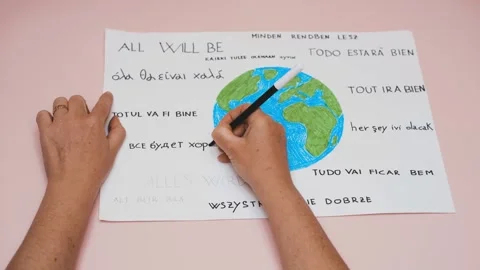 MINDEN RENDBEN LESZ
ALL WILL BE
TODO ESTARÁ BIEN
όλα θα είναι καλά
TOUT IRA BIEN
TOTUL VA FI BINE
her şey iyi olacak
ВСЕ будет хор
TUDO VAI FICAR BEM
ALLES WIRD
WSZYST IE DOBRZE